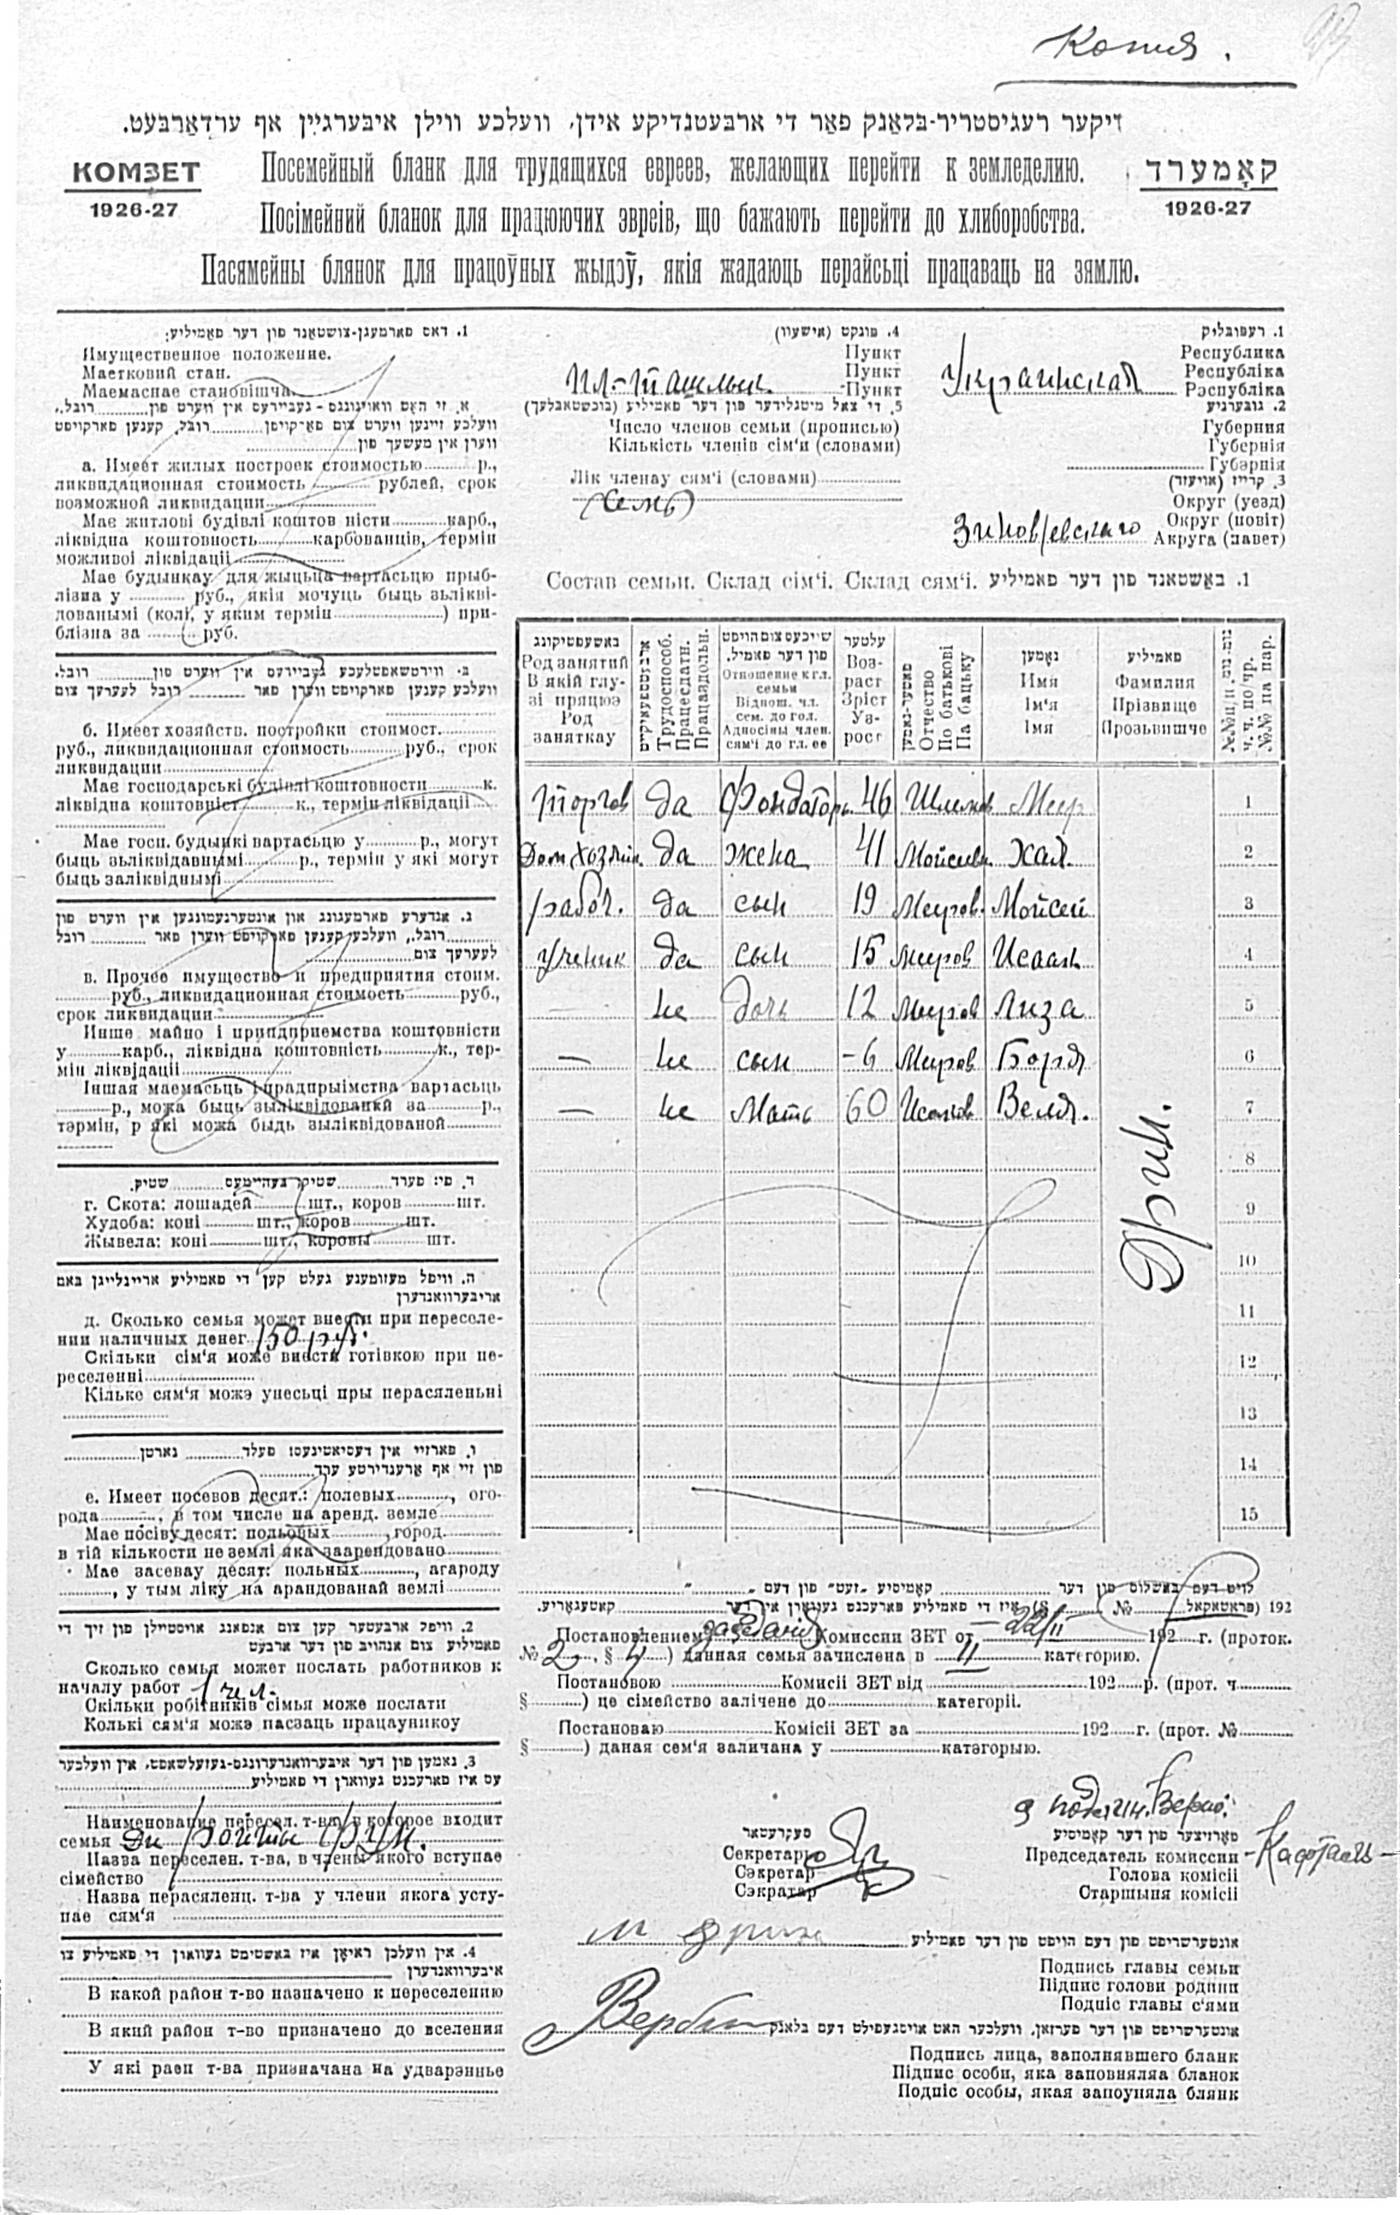 Копия.
זיקער רעגיסטריר-בלאַנק פאַר די ארבעטנדיקע אידן, וועלכע ווילן איבערגיין אף ערדאַרבעט.
КОМЗЕТ
1926-27
Посемейный бланк для трудящихся евреев, желающих перейти к земледелию.
Посімейний бланок для працюючих эвреів, що бажають перейти до хлиборобства.
Пасямейны блянок для працоўных жыдоў, якія жадаюць перайсьці працаваць на зямлю.
קאָמערד
1926-27
1. רעפובליק
Республика
Республіка
Рэспубліка
Украинская
2. גובערניע
Губерния
Губернія
Губэрнія
3. קרייז (אויעזד)
Округ (уезд)
Округ (повіт)
Акруга (павет)
Зиновьевского
4. פונקט (אישעוו)
Пункт
Пункт
Пункт
Пл.-Ташлык
5. די צאל מיטגלידער פון דער פאמיליע (בוכשטאבלעך)
Число членов семьи (прописью)
Кількість членів сім'и (словами)
Лік членау сям'і (словами)
(семь)
1. דאס פארמעגן-צושטאנד פון דער פאמיליע:
Имущественное положение.
Маетковий стан.
Маемаснае становішча.
א. זי האט וואוינונגס-געביידעס אין ווערט פון רובל,
וועלכע זיינען ווערט צום פארקויפן רובל, קענען פארקויפט
ווערן אין משעך פון
а. Имеет жилых построек стоимостью р.,
ликвидационная стоимость рублей, срок
возможной ликвидации
Має житлові будівлі коштов ністи карб.,
ліквідна коштовность карбованців, термін
можливоі ліквідаціі
Мае будынкау для жыцьця вартасьцю прыб-
лізна у руб., якія мочуць быць зьлікві-
дованымі (колі, у яким термін ) при-
блізна за руб.
ב. ווירטשאפטלעכע געביידעס אין ווערט פון רובל.
וועלכע קענען פארקויפט ווערן פאר רובל לערערך צום
б. Имеет хозяйств. постройки стоимост.
руб., ликвидационная стоимость руб., срок
ликвидации
Має господарські будівлі коштовности к.
ліквідна коштовніст к., термін ліквідаціі
Мае госп. будынкі вартасьцю у р., могут
быць зьліквідавнымі р., термін у які могут
быць заліквіднымі
ג. אנדערע פארמעגונג און אונטערנעמונגען אין ווערט פון
רובל., וועלכע קענען פארקויפט ווערן פאר רובל
לערערך צום
в. Прочее имущество и предприятия стоим.
руб., ликвидационная стоимость руб.,
срок ликвидации
Инше майно і припдриемства коштовністи
у карб., ліквідна коштовність к., тер-
мін ліквідаціі
Іншая маемасьць і прадпрыімства вартасьць
р., можа быць зыліквідованай за р.,
тэрмін, р які можа быдь зыліквідованой
ד. פי: פערד שטיק, בעהיימעס שטיק.
г. Скота: лошадей шт., коров шт.
Худоба: коні шт., коров шт.
Жывела: коні шт., коровы шт.
ה. וויפל מעזומענע געלט קען די פאמיליע אריינלייגן באם
אריבערוואנדערן
д. Сколько семья может внести при переселе-
нии наличных денег 150 руб.
Скільки сім'я може внести готівкою при пе-
реселенні
Кілько сям'я можэ унесьці пры перасяленьні
ו. פארזיי אין דעסיאטינעס: פעלד גארטן
פון זיי אף ארענדירטע ערד
е. Имеет посевов десят.: полевых , ого-
рода , в том числе на аренд. земле
Має посіву десят: польовых , город.
в тій кількости не землі яка заарендовано
Мае засевау десят: польных , агароду
, у тым ліку на арандованай землі
2. וויפל ארבעטער קען צום אנפאנג אויסטיילן פון זיך די
פאמיליע צום אנהויב פון דער ארבעט
Сколько семья может послать работников к
началу работ 1 чел.
Скільки робітників сімья може послати
Колькі сям'я можэ пасзаць працауникоу
3. נאמען פון דער איבערוואנדערונגס-געזעלשאפט, אין וועלכער
עס איז פארעכנט געווארן די פאמיליע
Наименование пересел. т-ва, в которое входит
семья
Назва переселен. т-ва, в члены якого вступае
сімейство
Назва перасяленц. т-ва у члени якога усту-
пае сям'я
4. אין וועלכן ראיאן איז באשטימט געווארן די פאמיליע צו
איבערוואנדערן
В какой район т-во назначено к переселению
В який район т-во призначено до вселения
У які раен т-ва призначана на удварэнне
Состав семьи. Склад сім'і. Склад сям'і. באשטאנד פון דער פאמיליע .1
באשעפטיקונג Род занятий В якій глу- зі пряцює Род заняткау
ארבעטספעאיקייט Трудоспособ. Працесдатн. Працаздольн.
שייכעס צום הויפט פון דער פאמיל. Отношение к гл. семьи Віднош. чл. сем. до гол. Адносіны член. сям'і до гл. ее
עלטער Воз- раст Зріст Уз- рост
פאטער-נאמען Отчество По батькові Па бацьку
נאמען Имя Ім'я Імя
פאמיליע Фамилия Прізвище Прозьвишче
№№ п. п. ч. ч. по/чр. №№ па пар.
торгов да фондаторъ 46 Шлимов Меер 1
Дом. хозяйк. да жена 41 Мойсеев. Хая. 2
рабоч. да сын 19 Меиров. Мойсей 3
ученик да сын 15 Меиров Исаак 4
— не дочь 12 Меиров Лиза 5
— не сын - 6 Меиров Боря 6
— не Мать 60 Исаков Веля. 7
8
9
10
11
12
13
14
15
לויט דעם באשלוס פון דער קאמיסיע "זעט" פון דעם
192 (פראטאקאל № §) איז די פאמיליע פארעכנט געווארן אין דער קאטעגאריע.
Постановлением Комиссии ЗЕТ от 22/II 192 г. (проток.
№ 2, § 4) данная семья зачислена в II категорию.
Постановою Комисії ЗЕТ від 192 р. (прот. ч
§ ) це сімейство залічене до категоріі.
Постановаю Комісіі ЗЕТ за 192 г. (прот. №
§ ) даная сем'я валичана у катэгорыю.
סעקרעטאר
Секретарь
Сэкретар
Сэкратар
פארזיצער פון דער קאמיסיע
Председатель комиссии
Голова комісіі
Старшыня комісіі
אונטערשריפט פון דעם הויפט פון דער פאמיליע
Подпись главы семьи
Підпис голови родини
Подпіс главы с'ями
אונטערשריפט פון דער פערזאן, וועלכער האט אויסגעפילט דעם בלאנק
Подпись лица, заполнявшего бланк
Підпис особи, яка заповняляа бланок
Подпіс особы, якая запоуняла блянк